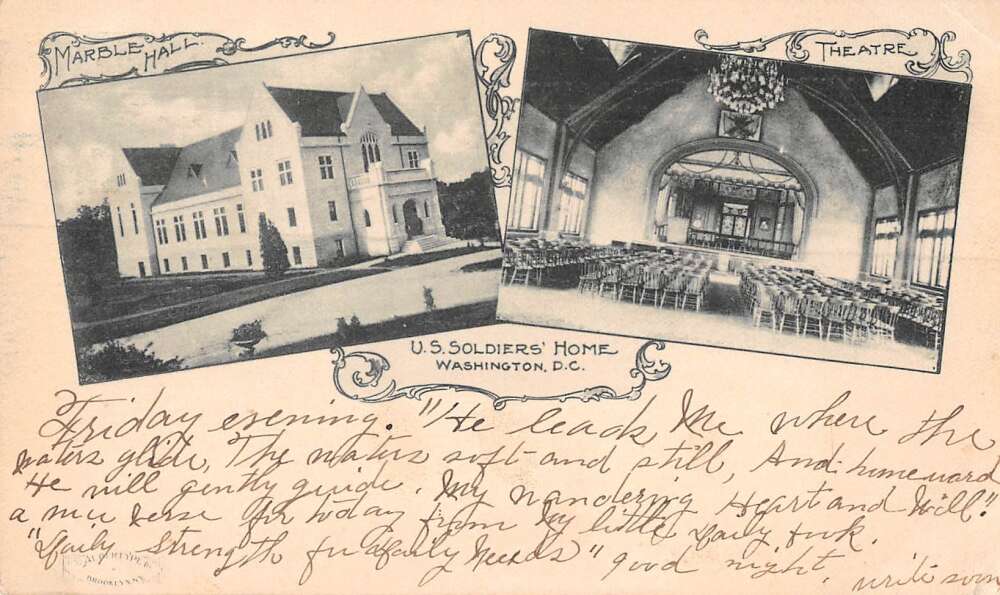 MARBLE HALL.
THEATRE
U.S. SOLDIERS' HOME
WASHINGTON, D.C.
Friday evening. "He leads Me where the
waters glide, The waters soft and still, And homeward
He will gently guide. My wandering Heart and Will"
a nice verse for today from my little Daily book.
"Daily Strength for Daily Needs" good night, write soon
ALBERTYPE
BROOKLYN, N.Y.